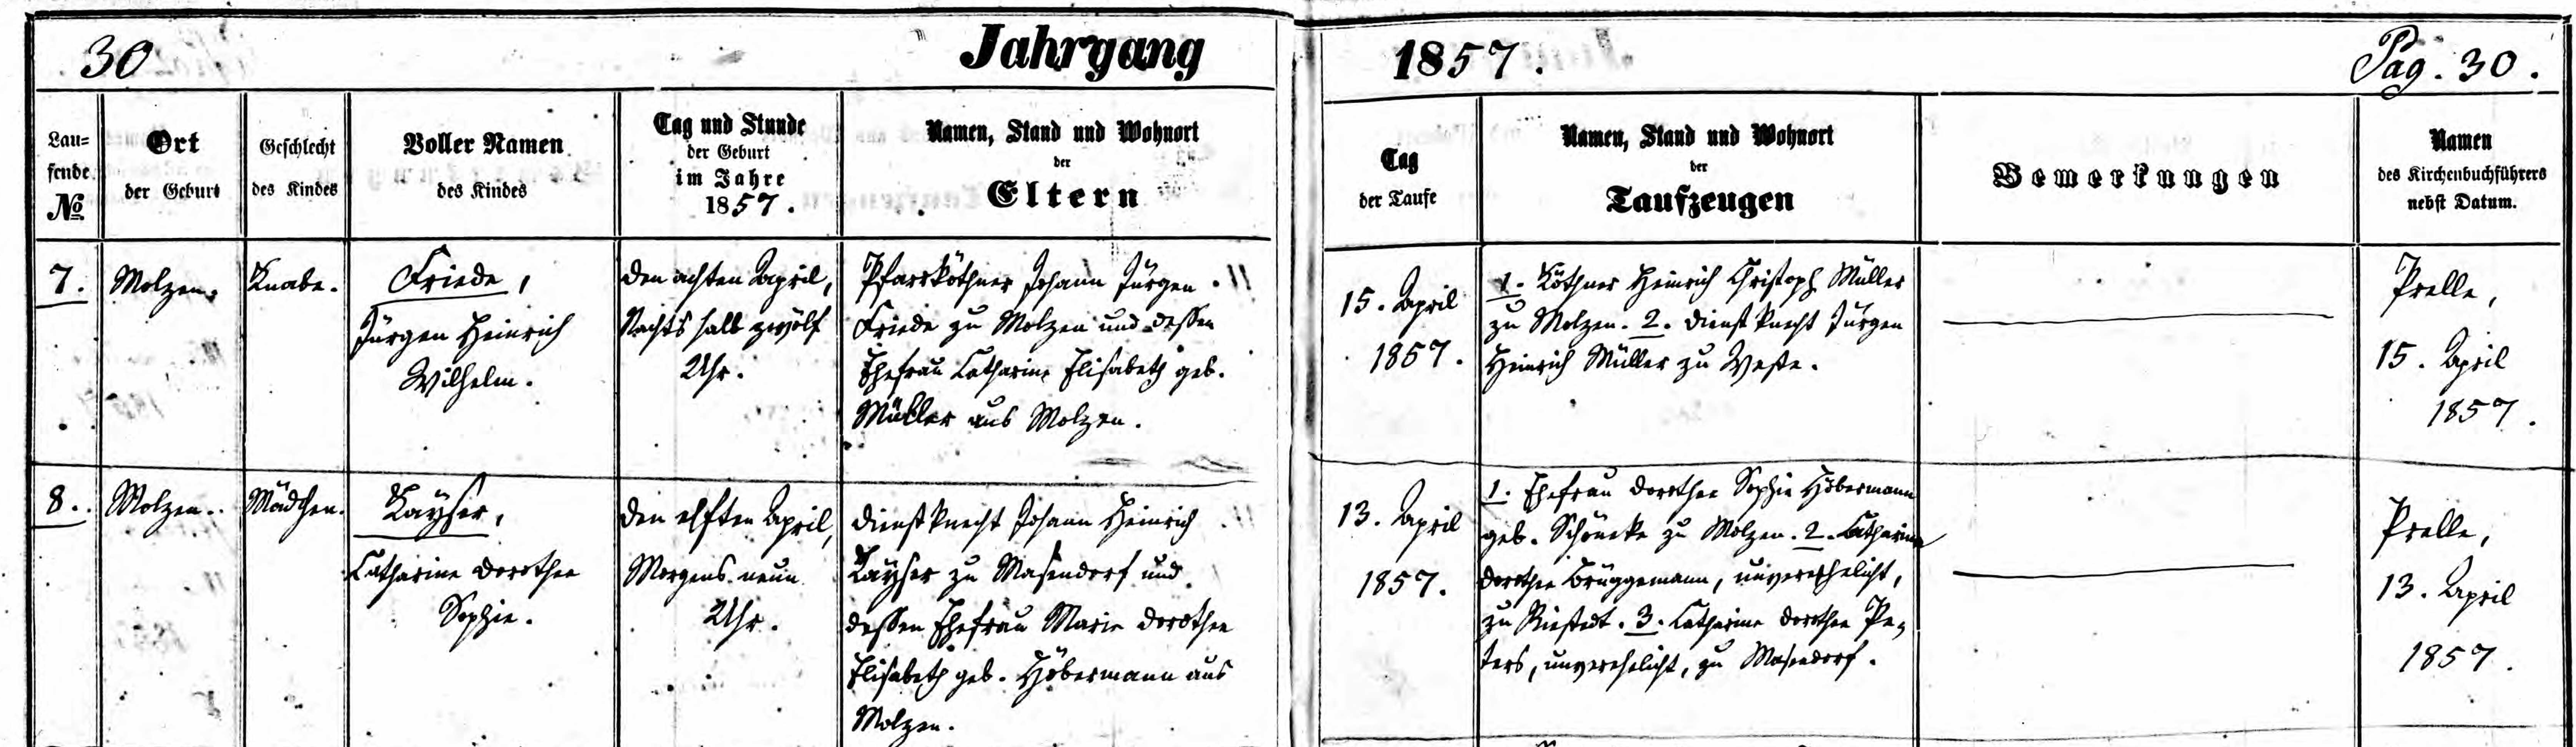 30 Jahrgang 1857. Pag. 30.
Lau=
fende
№
Ort
der Geburt
Geschlecht
des Kindes
Voller Namen
des Kindes
Tag und Stunde
der Geburt
im Jahre
1857.
Namen, Stand und Wohnort
der
Eltern
Tag
der Taufe
Namen, Stand und Wohnort
der
Taufzeugen
Bemerkungen
Namen
des Kirchenbuchführers
nebst Datum.
7.
Molzen.
Knabe.
Friede,
Jürgen Heinrich
Wilhelm.
Den achten April,
Nachts halb zwölf
Uhr.
Pfarrköthner Johann Jürgen
Friede zu Molzen und dessen
Ehefrau Catharine Elisabeth geb.
Müller aus Molzen.
15. April
1857.
1. Köthner Heinrich Christoph Müller
zu Molzen. 2. Dienstknecht Jürgen
Heinrich Müller zu Weste.
Prelle,
15. April
1857.
8.
Molzen.
Mädchen.
Kayser,
Catharine Dorothee
Sophie.
Den elften April,
Morgens neun
Uhr.
Dienstknecht Johann Heinrich
Kayser zu Masendorf und
dessen Ehefrau Marie Dorothee
Elisabeth geb. Höbermann aus
Molzen.
13. April
1857.
1. Ehefrau Dorothee Sophie Höbermann
geb. Schöneke zu Molzen. 2. Catharine
Dorothee Brüggemann, unverehelicht,
zu Riestedt. 3. Catharine Dorothee Pe=
ters, unverehelicht, zu Masendorf.
Prelle,
13. April
1857.